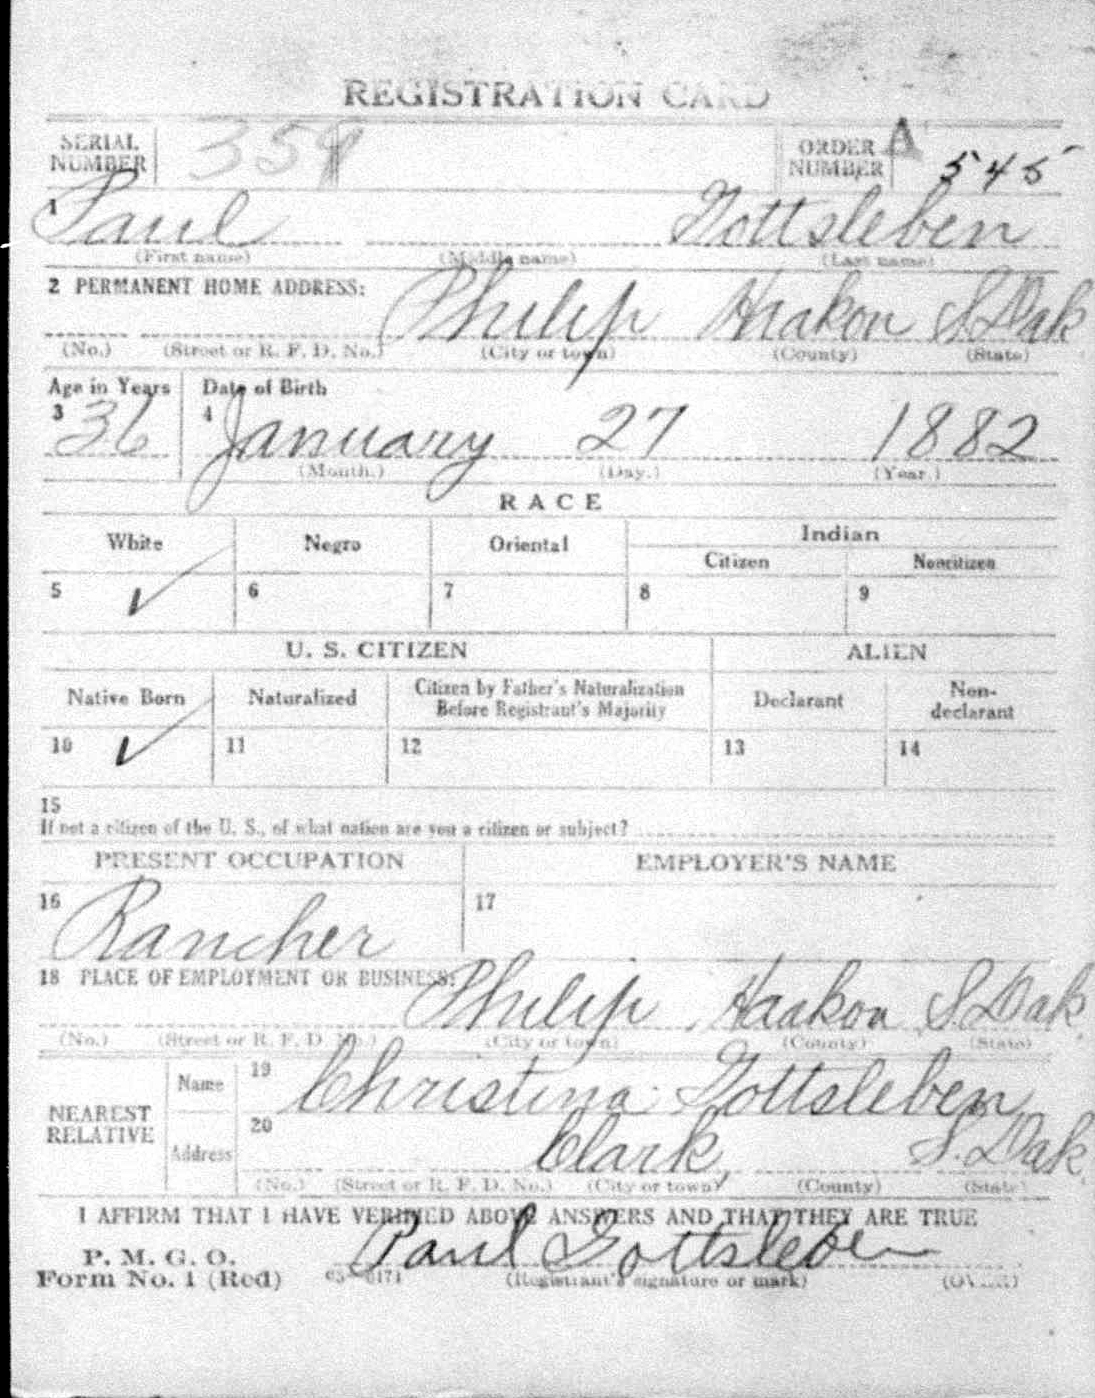 REGISTRATION CARD
SERIAL NUMBER 359 ORDER NUMBER A 545
1 Paul Gottsleben
(First name) (Middle name) (Last name)
2 PERMANENT HOME ADDRESS:
Philip Haakon S.Dak
(No.) (Street or R. F. D. No.) (City or town) (County) (State)
Age in Years Date of Birth
3 36 4 January 27 1882
(Month.) (Day.) (Year.)
RACE
White Negro Oriental Indian
Citizen Noncitizen
5 ✓ 6 7 8 9
U. S. CITIZEN ALIEN
Native Born Naturalized Citizen by Father's Naturalization Before Registrant's Majority Declarant Non-declarant
10 ✓ 11 12 13 14
15
If not a citizen of the U. S., of what nation are you a citizen or subject?
PRESENT OCCUPATION EMPLOYER'S NAME
16 Rancher 17
18 PLACE OF EMPLOYMENT OR BUSINESS:
Philip Haakon S.Dak
(No.) (Street or R. F. D. No.) (City or town) (County) (State)
NEAREST RELATIVE Name 19 Christina Gottsleben
Address 20 Clark, S.Dak.
(No.) (Street or R. F. D. No.) (City or town) (County) (State)
I AFFIRM THAT I HAVE VERIFIED ABOVE ANSWERS AND THAT THEY ARE TRUE
P. M. G. O.
Form No. 1 (Red) Paul Gottsleben
(Registrant's signature or mark) (OVER)